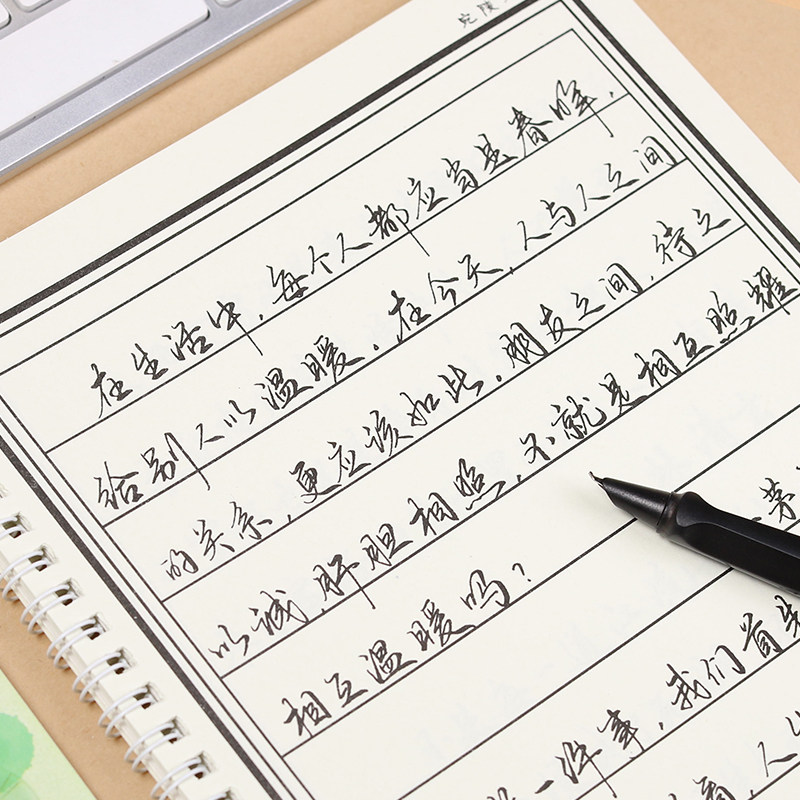 在生活中，每个人都应当是春晖，
给别人以温暖。在今天，人与人之间
的关系，更应该如此。朋友之间，待之
以诚，肝胆相照，不就是相互照耀
相互温暖吗？
茅
一件事，我们首先
，人